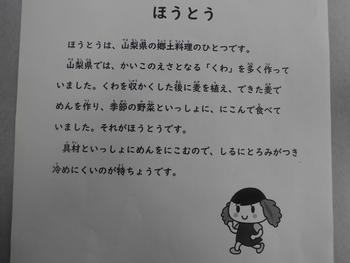 ほうとう
ほうとうは、山梨県の郷土料理のひとつです。
山梨県では、かいこのえさとなる「くわ」を多く作って
いました。くわを収かくした後に麦を植え、できた麦で
めんを作り、季節の野菜といっしょに、にこんで食べて
いました。それがほうとうです。
具材といっしょにめんをにこむので、しるにとろみがつき
冷めにくいのが特ちょうです。